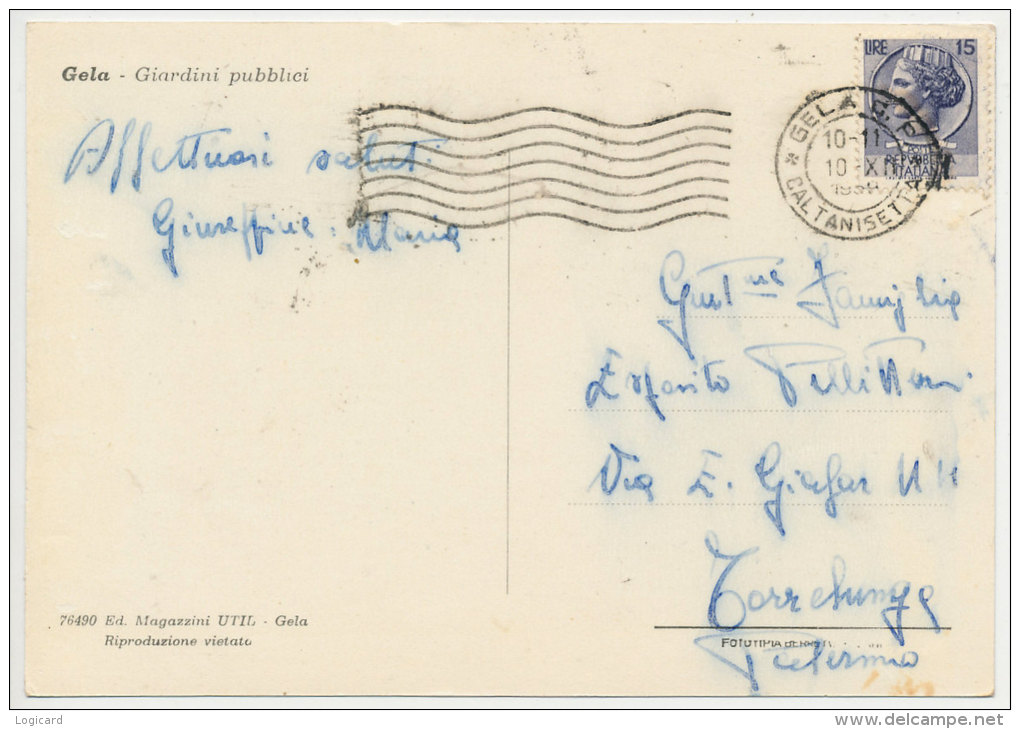 Gela - Giardini pubblici
LIRE 15
REPUBBLICA
ITALIANA
GELA
10-11
10 XII
CALTANISETTA
Affettuosi saluti
Giuseppina, Maria
Gent.ma Famiglia
Esposito Pellitteri
Via E. Giafar N
Torrelunga
Palermo
76490 Ed. Magazzini UTIL - Gela
Riproduzione vietata
FOTOTIPIA
Logicard
delcampe.net